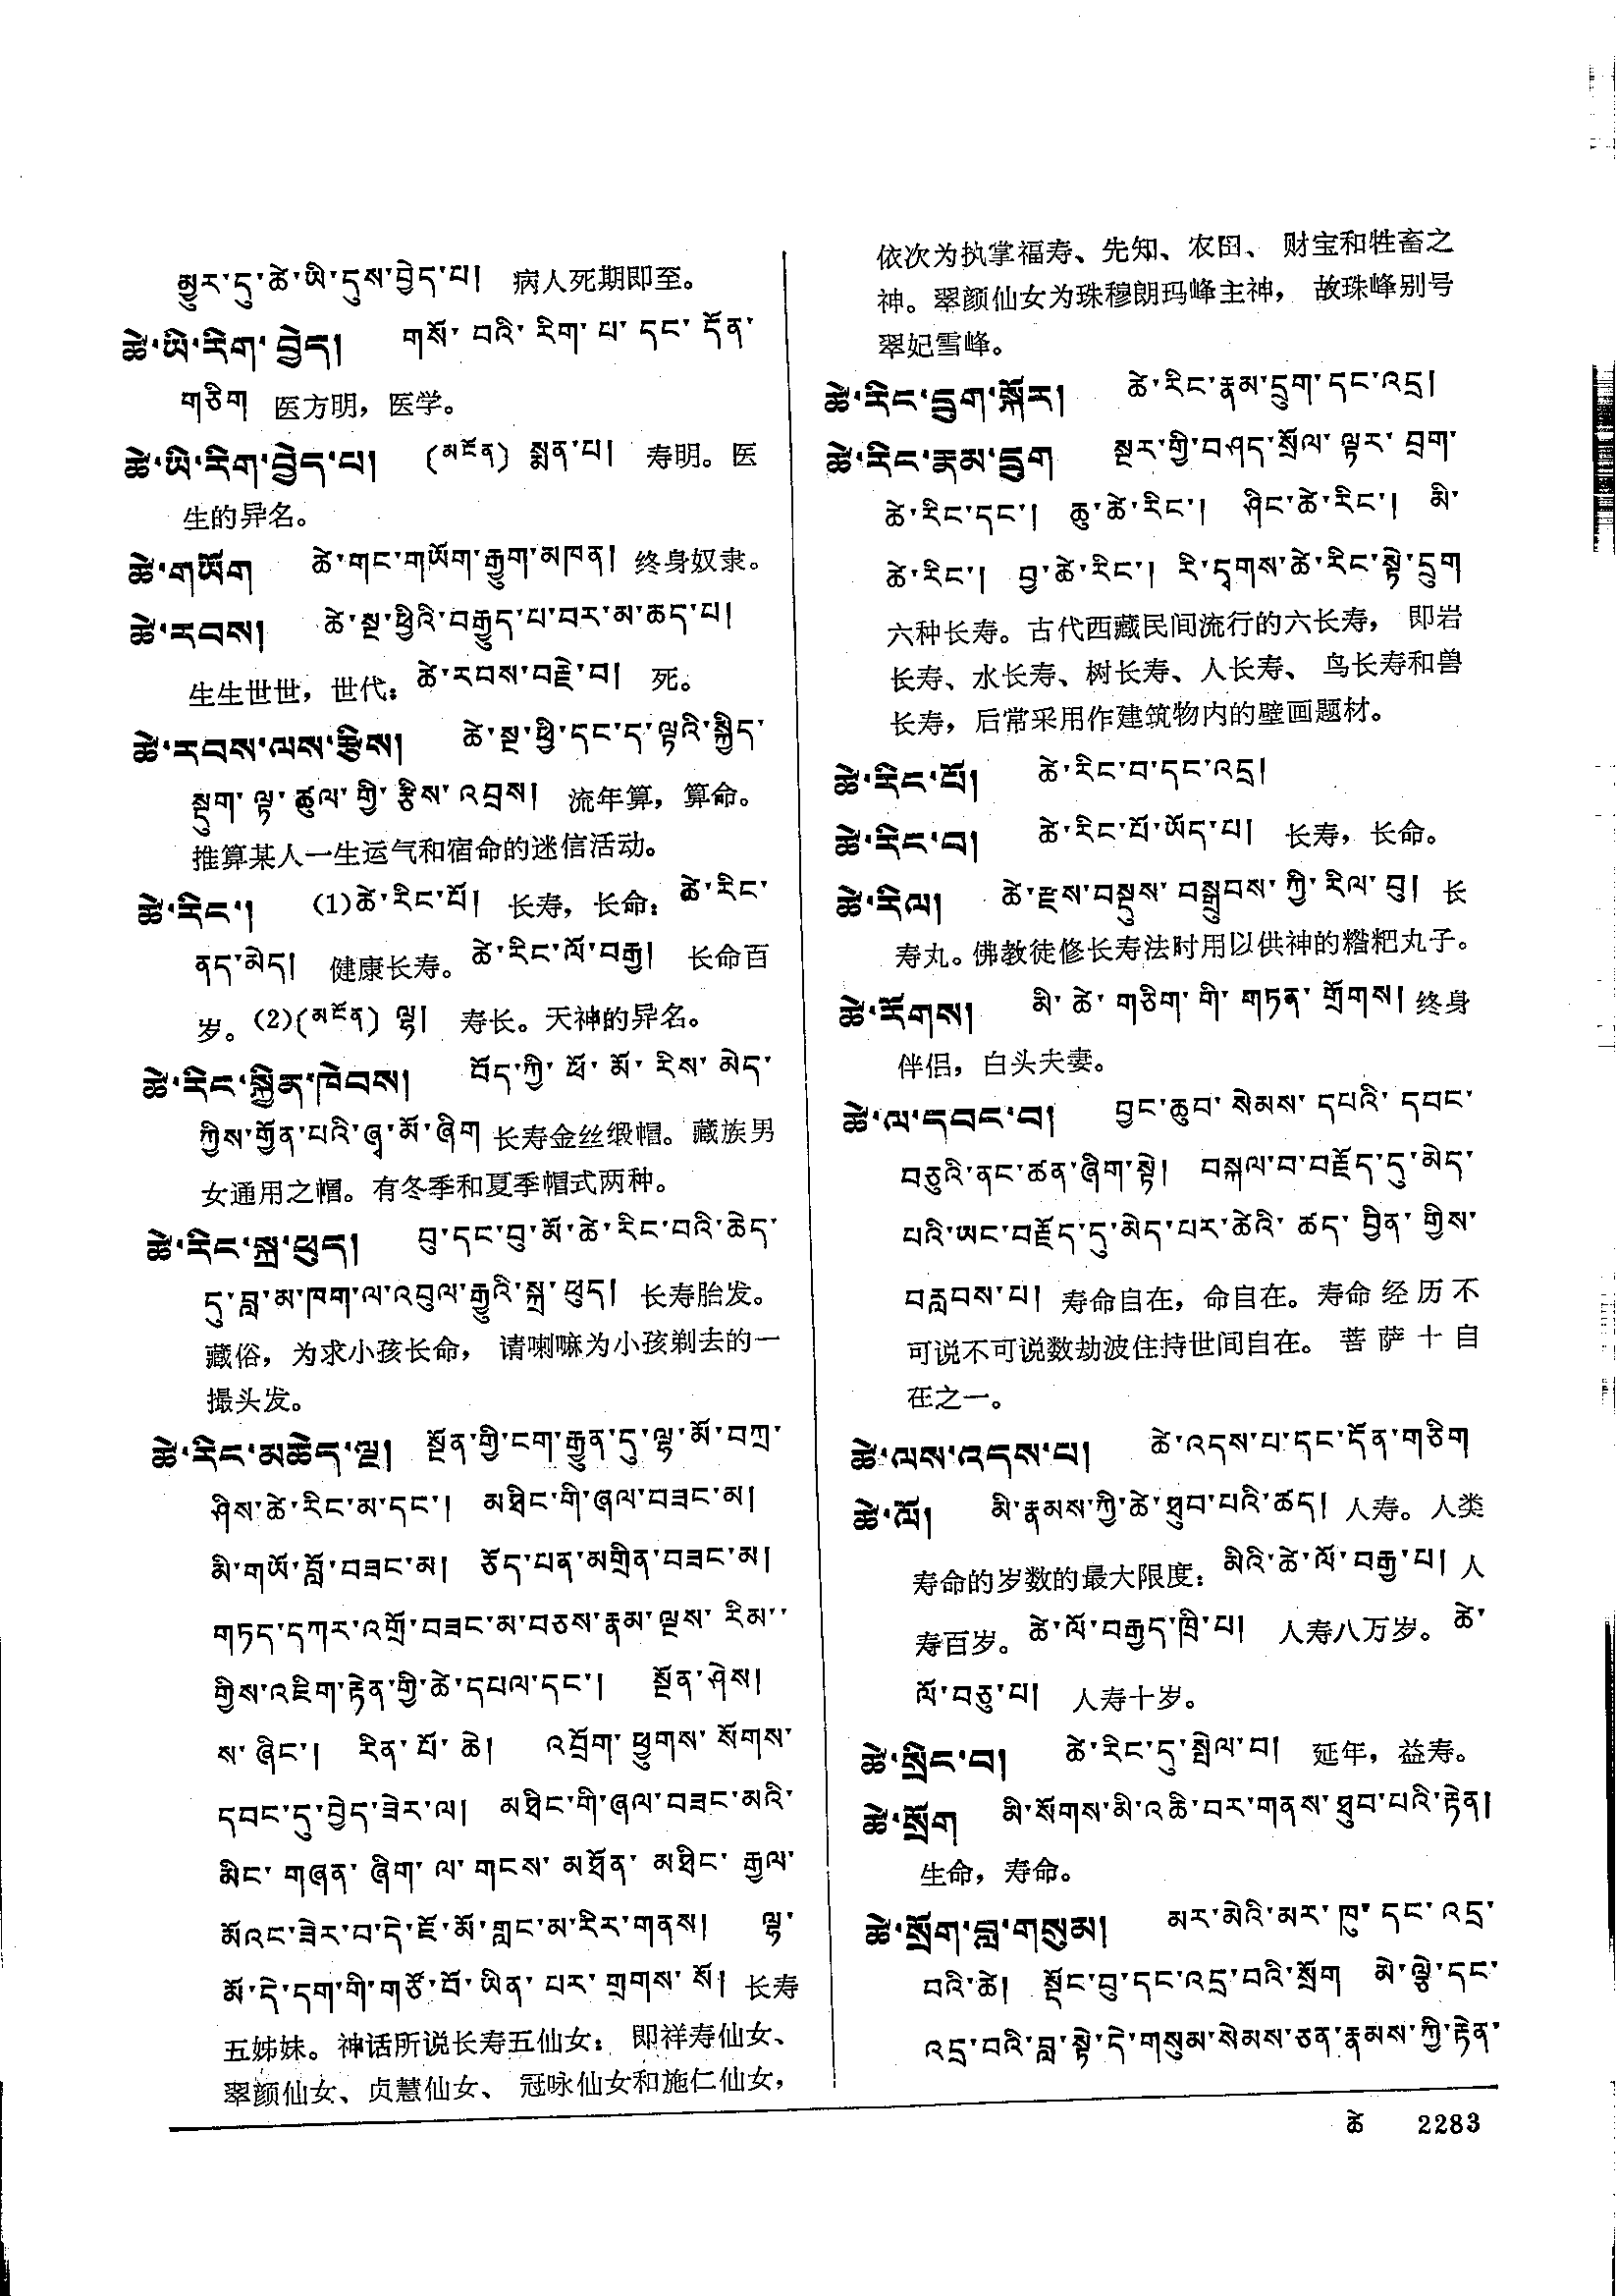 མྱུར་དུ་ཚེ་ཡི་དུས་བྱེད་པ། 病人死期即至。
ཚེ་ཡི་རིག་བྱེད། གསོ་བའི་རིག་པ་དང་དོན་
གཅིག 医方明，医学。
ཚེ་ཡི་རིག་བྱེད་པ། (མངོན) སྨན་པ། 寿明。医
生的异名。
ཚེ་གཡོག ཚེ་གང་གཡོག་རྒྱུག་མཁན། 终身奴隶。
ཚེ་རབས། ཚེ་སྔ་ཕྱིའི་བརྒྱུད་པ་བར་མ་ཆད་པ།
生生世世，世代：ཚེ་རབས་བརྗེ་བ། 死。
ཚེ་རབས་ལས་རྩིས། ཚེ་སྔ་ཕྱི་དང་ད་ལྟའི་སྐྱིད་
སྡུག་ལྟ་ཚུལ་གྱི་རྩིས་འབྲས། 流年算，算命。
推算某人一生运气和宿命的迷信活动。
ཚེ་རིང་། (1)ཚེ་རིང་པོ། 长寿，长命：ཚེ་རིང་
ནད་མེད། 健康长寿。ཚེ་རིང་ལོ་བརྒྱ། 长命百
岁。(2)(མངོན) ལྷ། 寿长。天神的异名。
ཚེ་རིང་སྐྱིན་ཁེབས། བོད་ཀྱི་ཕོ་མོ་རིས་མེད་
ཀྱིས་གྱོན་པའི་ཞྭ་མོ་ཞིག 长寿金丝缎帽。藏族男
女通用之帽。有冬季和夏季帽式两种。
ཚེ་རིང་སྐྲ་ཕུད། བུ་དང་བུ་མོ་ཚེ་རིང་བའི་ཆེད་
དུ་བླ་མ་ཁག་ལ་འབུལ་རྒྱུའི་སྐྲ་ཕུད། 长寿胎发。
藏俗，为求小孩长命，请喇嘛为小孩剃去的一
撮头发。
ཚེ་རིང་མཆེད་ལྔ། སྔོན་གྱི་ངག་རྒྱུན་དུ་ལྷ་མོ་བཀྲ་
ཤིས་ཚེ་རིང་མ་དང་། མཐིང་གི་ཞལ་བཟང་མ།
མི་གཡོ་བློ་བཟང་མ། ཅོད་པན་མགྲིན་བཟང་མ།
གཏད་དཀར་འགྲོ་བཟང་མ་བཅས་རྣམ་ལྔས་རིམ་
གྱིས་འཇིག་རྟེན་གྱི་ཚེ་དཔལ་དང་། སྔོན་ཤེས།
ས་ཞིང་། རིན་པོ་ཆེ། འབྲོག་ཕྱུགས་སོགས་
དབང་དུ་བྱེད་ཟེར་ལ། མཐིང་གི་ཞལ་བཟང་མའི་
མིང་གཞན་ཞིག་ལ་གངས་མཐོན་མཐིང་རྒྱལ་
མོའང་ཟེར་བ་དེ་ཇོ་མོ་གླང་མ་རིར་གནས། ལྷ་
མོ་དེ་དག་གི་གཙོ་བོ་ཡིན་པར་གྲགས་སོ། 长寿
五姊妹。神话所说长寿五仙女：即祥寿仙女、
翠颜仙女、贞慧仙女、冠咏仙女和施仁仙女，
依次为执掌福寿、先知、农田、财宝和牲畜之
神。翠颜仙女为珠穆朗玛峰主神，故珠峰别号
翠妃雪峰。
ཚེ་རིང་དྲུག་སྐོར། ཚེ་རིང་རྣམ་དྲུག་དང་འདྲ།
ཚེ་རིང་རྣམ་དྲུག སྔར་གྱི་བཤད་སྲོལ་ལྟར་བྲག་
ཚེ་རིང་དང་། ཆུ་ཚེ་རིང་། ཤིང་ཚེ་རིང་། མི་
ཚེ་རིང་། བྱ་ཚེ་རིང་། རི་དྭགས་ཚེ་རིང་སྟེ་དྲུག
六种长寿。古代西藏民间流行的六长寿，即岩
长寿、水长寿、树长寿、人长寿、鸟长寿和兽
长寿，后常采用作建筑物内的壁画题材。
ཚེ་རིང་པོ། ཚེ་རིང་བ་དང་འདྲ།
ཚེ་རིང་བ། ཚེ་རིང་པོ་ཡོད་པ། 长寿，长命。
ཚེ་རིལ། ཚེ་རྫས་བསྡུས་བསྒྲུབས་ཀྱི་རིལ་བུ། 长
寿丸。佛教徒修长寿法时用以供神的糌粑丸子。
ཚེ་རོགས། མི་ཚེ་གཅིག་གི་གཏན་གྲོགས། 终身
伴侣，白头夫妻。
ཚེ་ལ་དབང་བ། བྱང་ཆུབ་སེམས་དཔའི་དབང་
བཅུའི་ནང་ཚན་ཞིག་སྟེ། བསྐལ་བ་བརྗོད་དུ་མེད་
པའི་ཡང་བརྗོད་དུ་མེད་པར་ཚེའི་ཚད་བྱིན་གྱིས་
བརླབས་པ། 寿命自在，命自在。寿命经历不
可说不可说数劫波住持世间自在。菩萨十自
在之一。
ཚེ་ལས་འདས་པ། ཚེ་འདས་པ་དང་དོན་གཅིག
ཚེ་ལོ། མི་རྣམས་ཀྱི་ཚེ་ཐུབ་པའི་ཚད། 人寿。人类
寿命的岁数的最大限度：མིའི་ཚེ་ལོ་བརྒྱ་པ། 人
寿百岁。ཚེ་ལོ་བརྒྱད་ཁྲི་པ། 人寿八万岁。ཚེ་
ལོ་བཅུ་པ། 人寿十岁。
ཚེ་སྲིང་བ། ཚེ་རིང་དུ་སྤེལ་བ། 延年，益寿。
ཚེ་སྲོག མི་སོགས་མི་འཆི་བར་གནས་ཐུབ་པའི་རྟེན།
生命，寿命。
ཚེ་སྲོག་བླ་གསུམ། མར་མེའི་མར་ཁུ་དང་འདྲ་
བའི་ཚེ། སྡོང་བུ་དང་འདྲ་བའི་སྲོག མེ་ལྕེ་དང་
འདྲ་བའི་བླ་སྟེ་དེ་གསུམ་སེམས་ཅན་རྣམས་ཀྱི་རྟེན་
ཚེ 2283